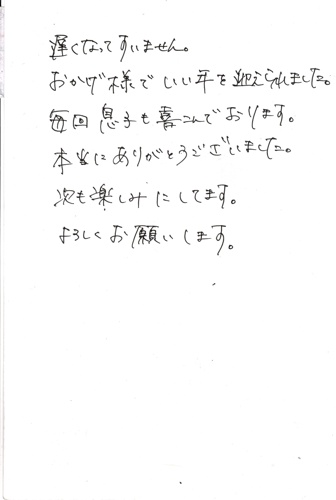 遅くなってすいません。
おかげ様でいい年を迎えられました。
毎回息子も喜こんでおります。
本当にありがとうございました。
次も楽しみにしてます。
よろしくお願いします。